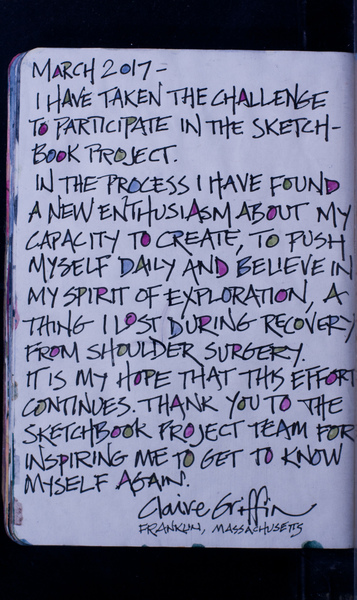 MARCH 2017-
I HAVE TAKEN THE CHALLENGE
TO PARTICIPATE IN THE SKETCH-
BOOK PROJECT.
IN THE PROCESS I HAVE FOUND
A NEW ENTHUSIASM ABOUT MY
CAPACITY TO CREATE, TO PUSH
MYSELF DAILY AND BELIEVE IN
MY SPIRIT OF EXPLORATION, A
THING I LOST DURING RECOVERY
FROM SHOULDER SURGERY.
IT IS MY HOPE THAT THIS EFFORT
CONTINUES. THANK YOU TO THE
SKETCHBOOK PROJECT TEAM FOR
INSPIRING ME TO GET TO KNOW
MYSELF AGAIN.
Claire Griffin
FRANKLIN, MASSACHUSETTS